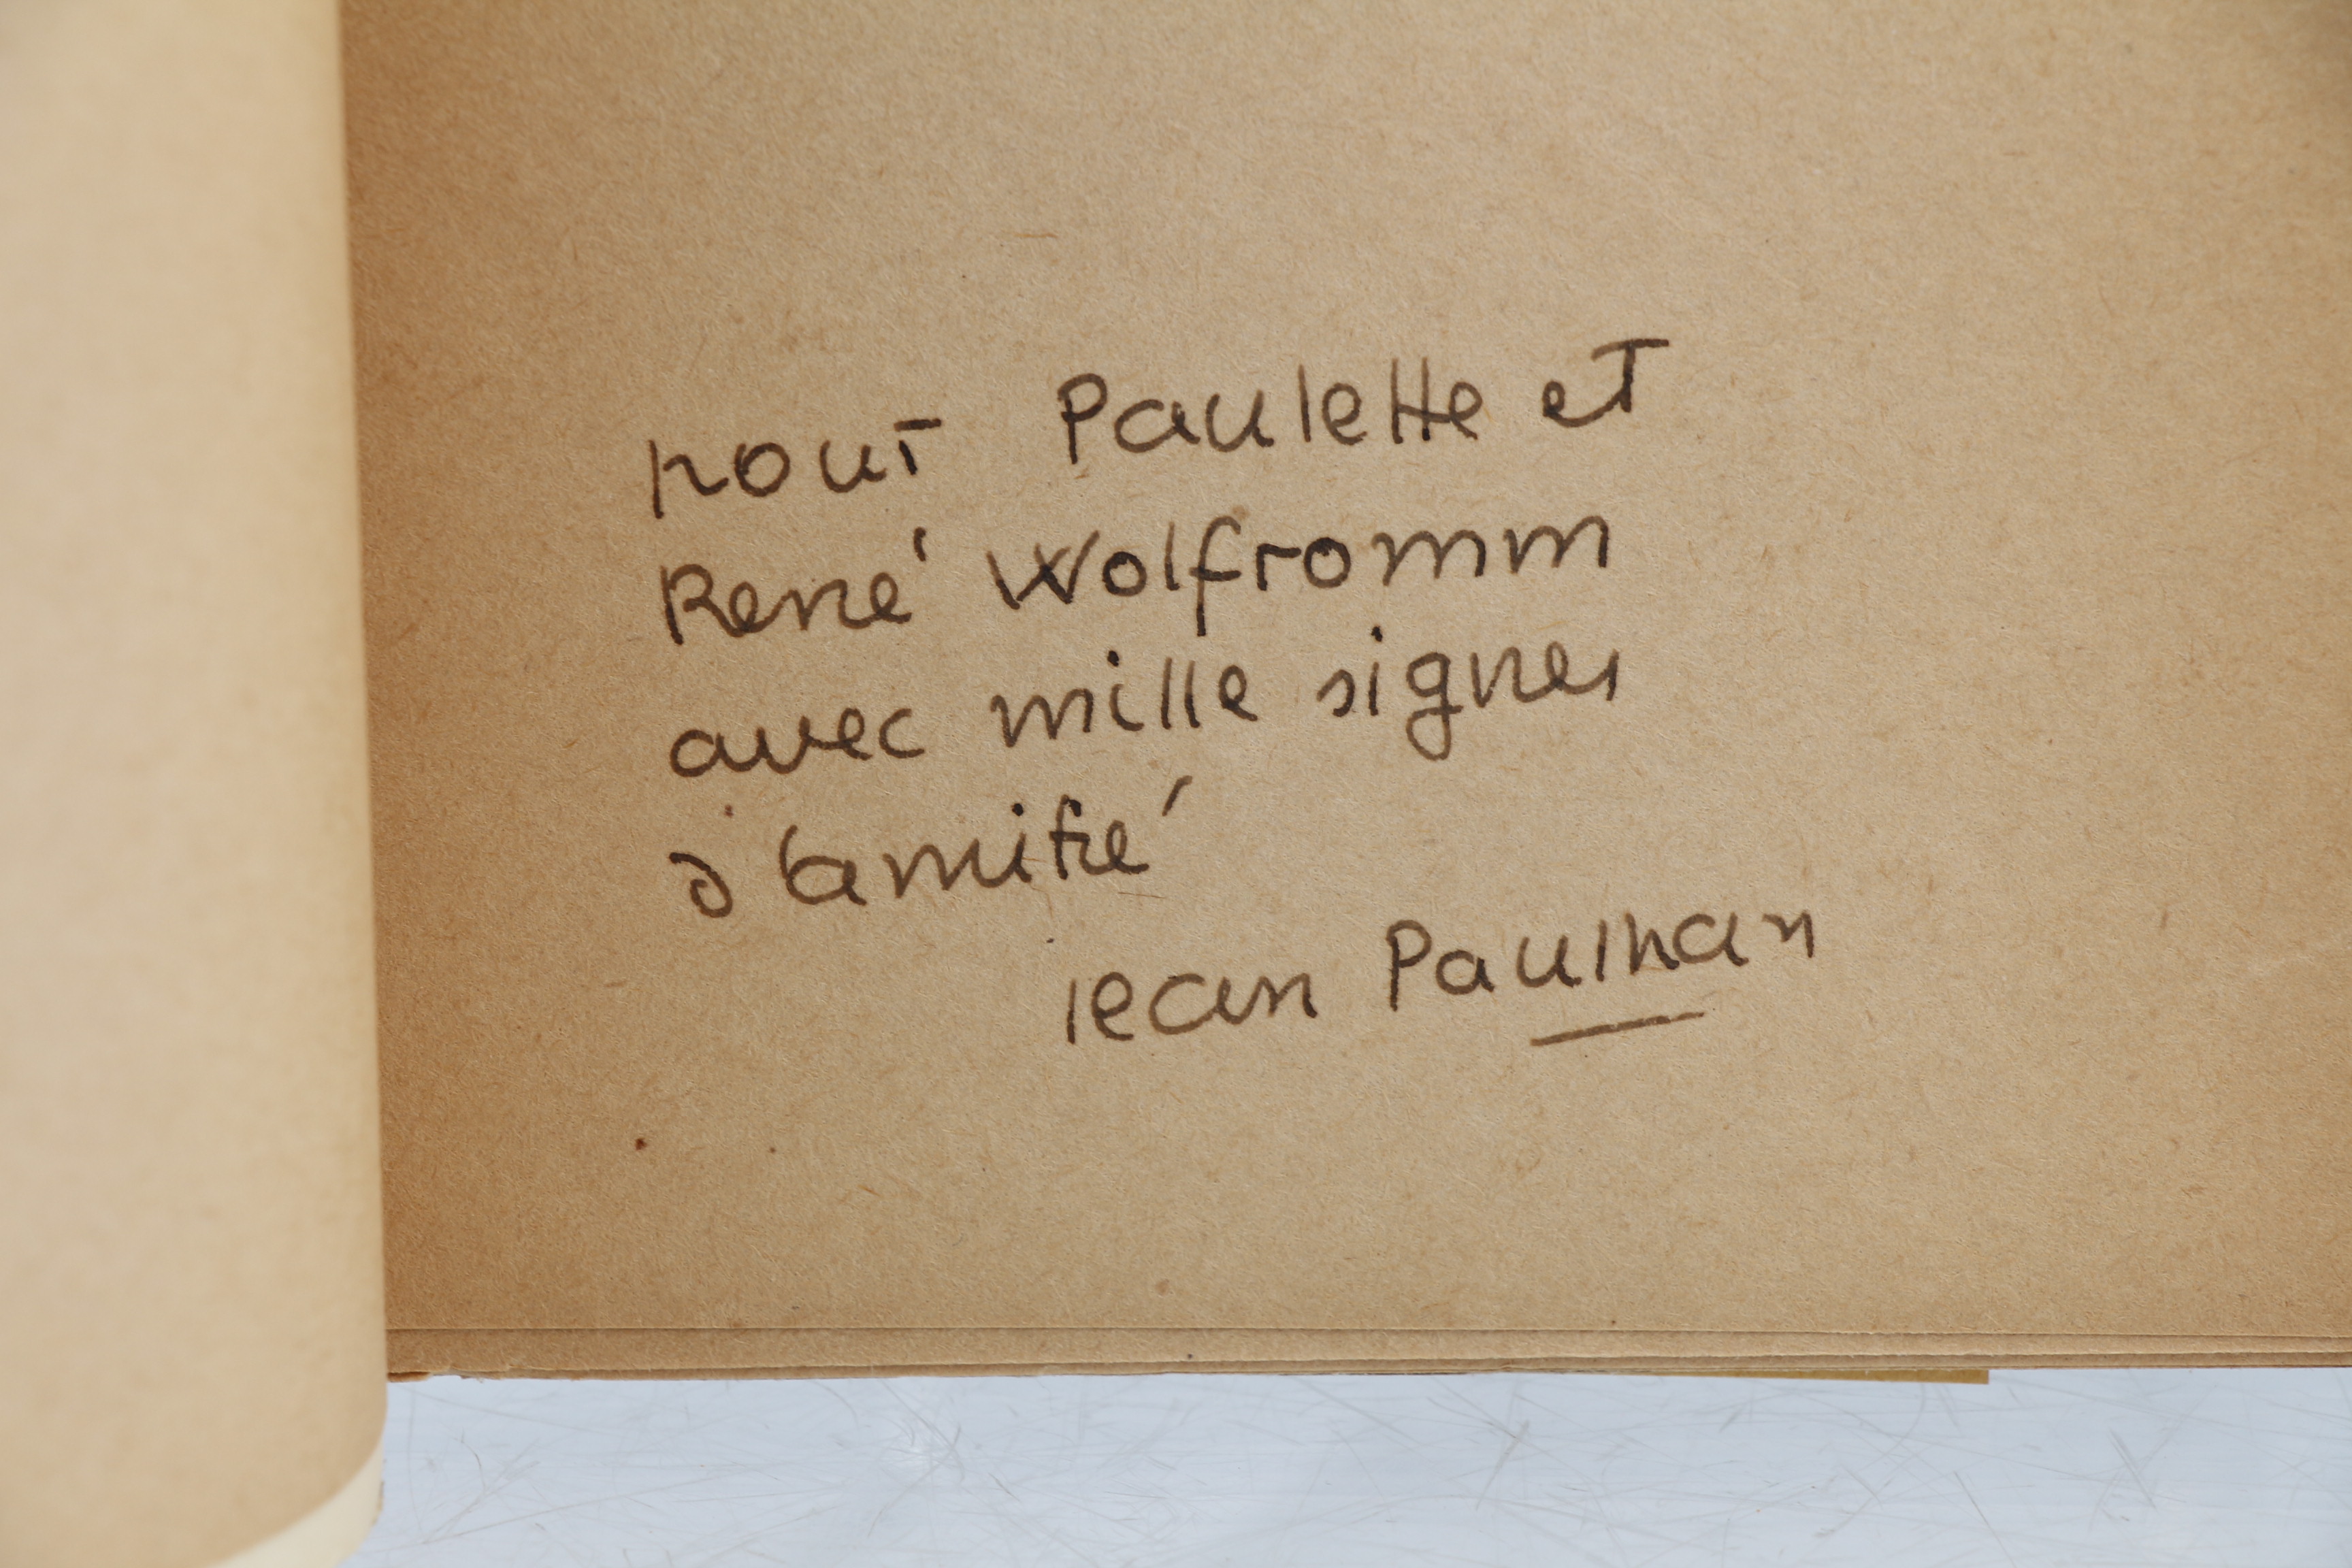 pour Paulette et
René Wolfromm
avec mille signes
d'amitié
Jean Paulhan